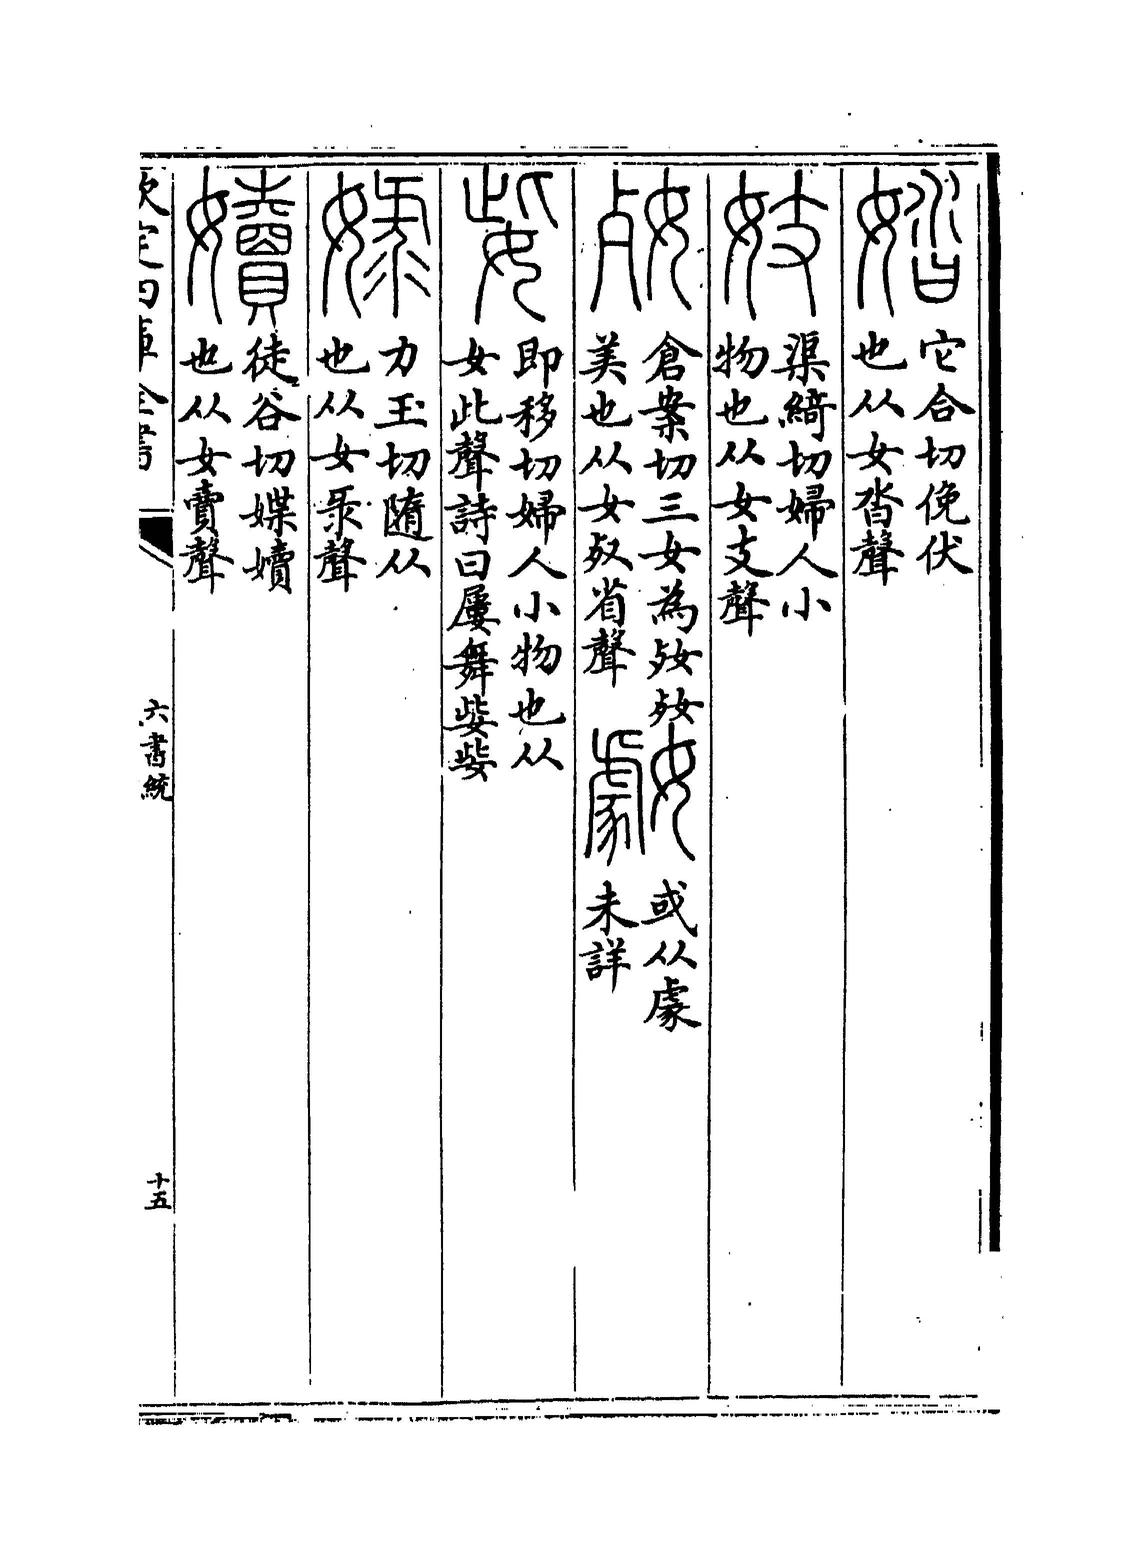 㛥它合切俛伏
也从女沓聲
妓渠綺切婦人小
物也从女支聲
㚞倉案切三女為㚞㚞
美也从女𣦼省聲
或从豦
未詳
㛗即移切婦人小物也从
女此聲詩曰屢舞㛗㛗
娽力玉切隨从
也从女录聲
嬻徒谷切媟嬻
也从女賣聲
欽定四庫全書
六書統
十五